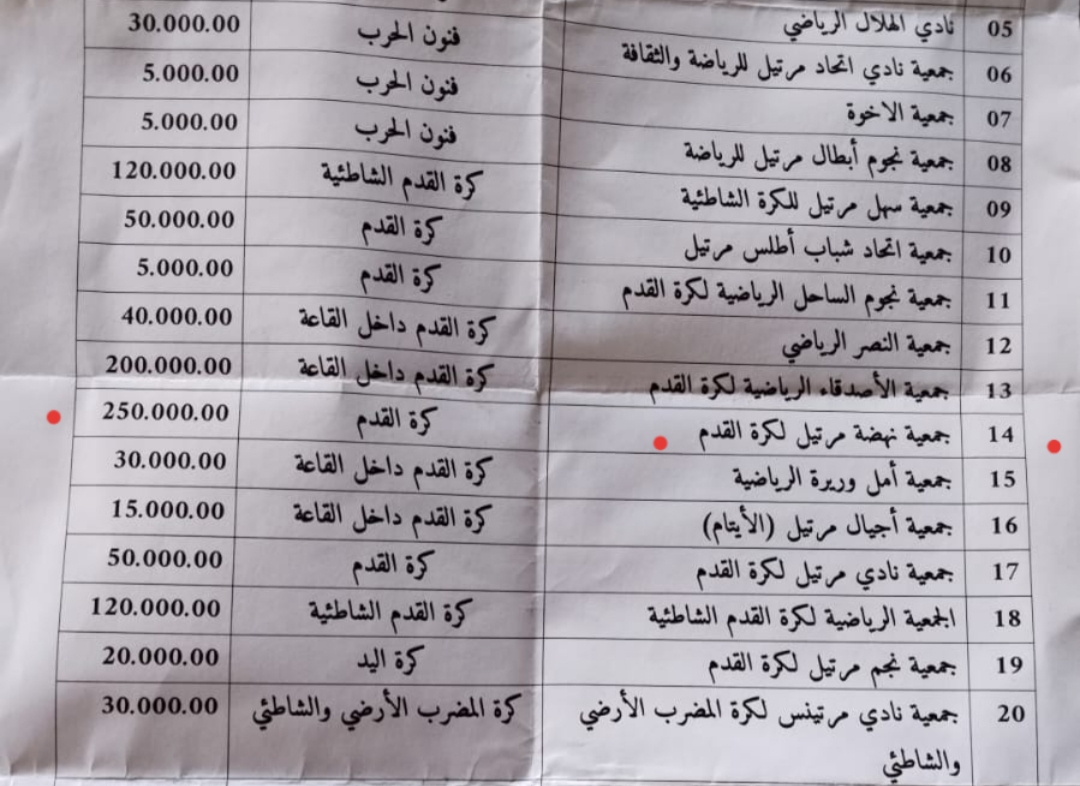 05 نادي الهلال الرياضي
06 جمعية نادي اتحاد مرتيل للرياضة والثقافة فنون الحرب 30.000.00
07 جمعية الاخوة فنون الحرب 5.000.00
08 جمعية نجوم أبطال مرتيل للرياضة فنون الحرب 5.000.00
09 جمعية سهل مرتيل للكرة الشاطئية كرة القدم الشاطئية 120.000.00
10 جمعية اتحاد شباب أطلس مرتيل كرة القدم 50.000.00
11 جمعية نجوم الساحل الرياضية لكرة القدم كرة القدم 5.000.00
12 جمعية النصر الرياضي كرة القدم داخل القاعة 40.000.00
13 جمعية الأصدقاء الرياضية لكرة القدم كرة القدم داخل القاعة 200.000.00
14 جمعية نهضة مرتيل لكرة القدم كرة القدم 250.000.00
15 جمعية أمل وريرة الرياضية كرة القدم داخل القاعة 30.000.00
16 جمعية أجيال مرتيل (الأيتام) كرة القدم داخل القاعة 15.000.00
17 جمعية نادي مرتيل لكرة القدم كرة القدم 50.000.00
18 الجمعية الرياضية لكرة القدم الشاطئية كرة القدم الشاطئية 120.000.00
19 جمعية نجم مرتيل لكرة القدم كرة اليد 20.000.00
20 جمعية نادي مرتينس لكرة المضرب الأرضي كرة المضرب الأرضي والشاطئي 30.000.00
والشاطئي